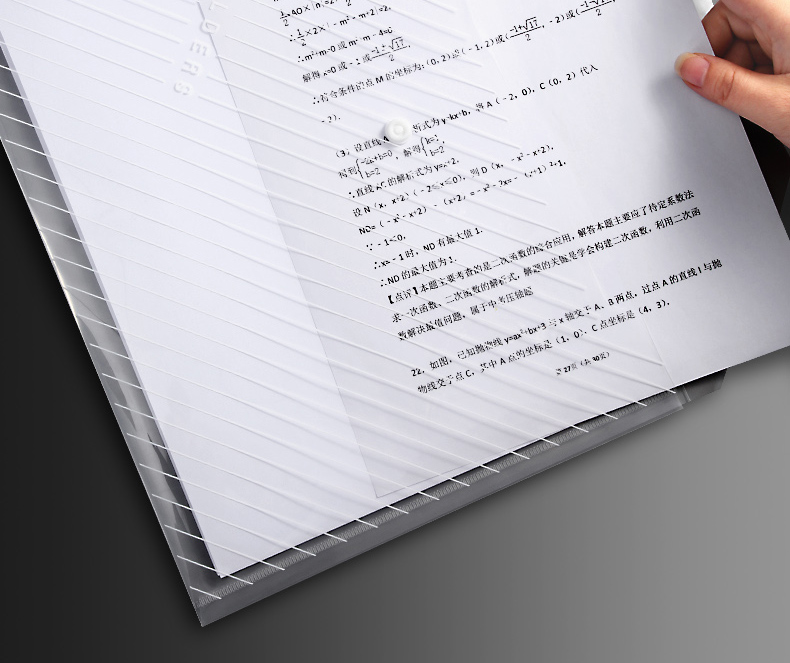 LDERS
1/2 AO×|n|=2,
∴1/2×2×|-m²-m+2|=2,
∴m²+m=0 或 m²+m-4=0
解得 x=0 或 -1 或 (-1±√17)/2,
∴符合条件的点 M 的坐标为:(0,2)或(-1,2)或((-1+√17)/2,-2)或(
-2).
(3)设直线 A 析式为 y=kx+b,将 A(-2,0),C(0,2)代入
得到{-2k+b=0 b=2,解得{k=1 b=2
∴直线 AC 的解析式为 y=x+2,
设 N(x,x+2)(-2≤x≤0),则 D(x,-x²-x+2),
ND=(-x²-x+2)-(x+2)=-x²-2x=-(x+1)²+1,
∵-1<0,
∴x=-1 时,ND 有最大值 1.
∴ND 的最大值为 1.
【点评】本题主要考查的是二次函数的综合应用,解答本题主要应了待定系数法
求一次函数、二次函数的解析式,解题的关键是学会构建二次函数,利用二次函
数解决最值问题,属于中考压轴题
22.如图,已知抛物线 y=ax²+bx+3 与 x 轴交于 A、B 两点,过点 A 的直线 l 与抛
物线交于点 C,其中 A 点的坐标是(1,0),C 点坐标是(4,3).
第 27页(共 30页)